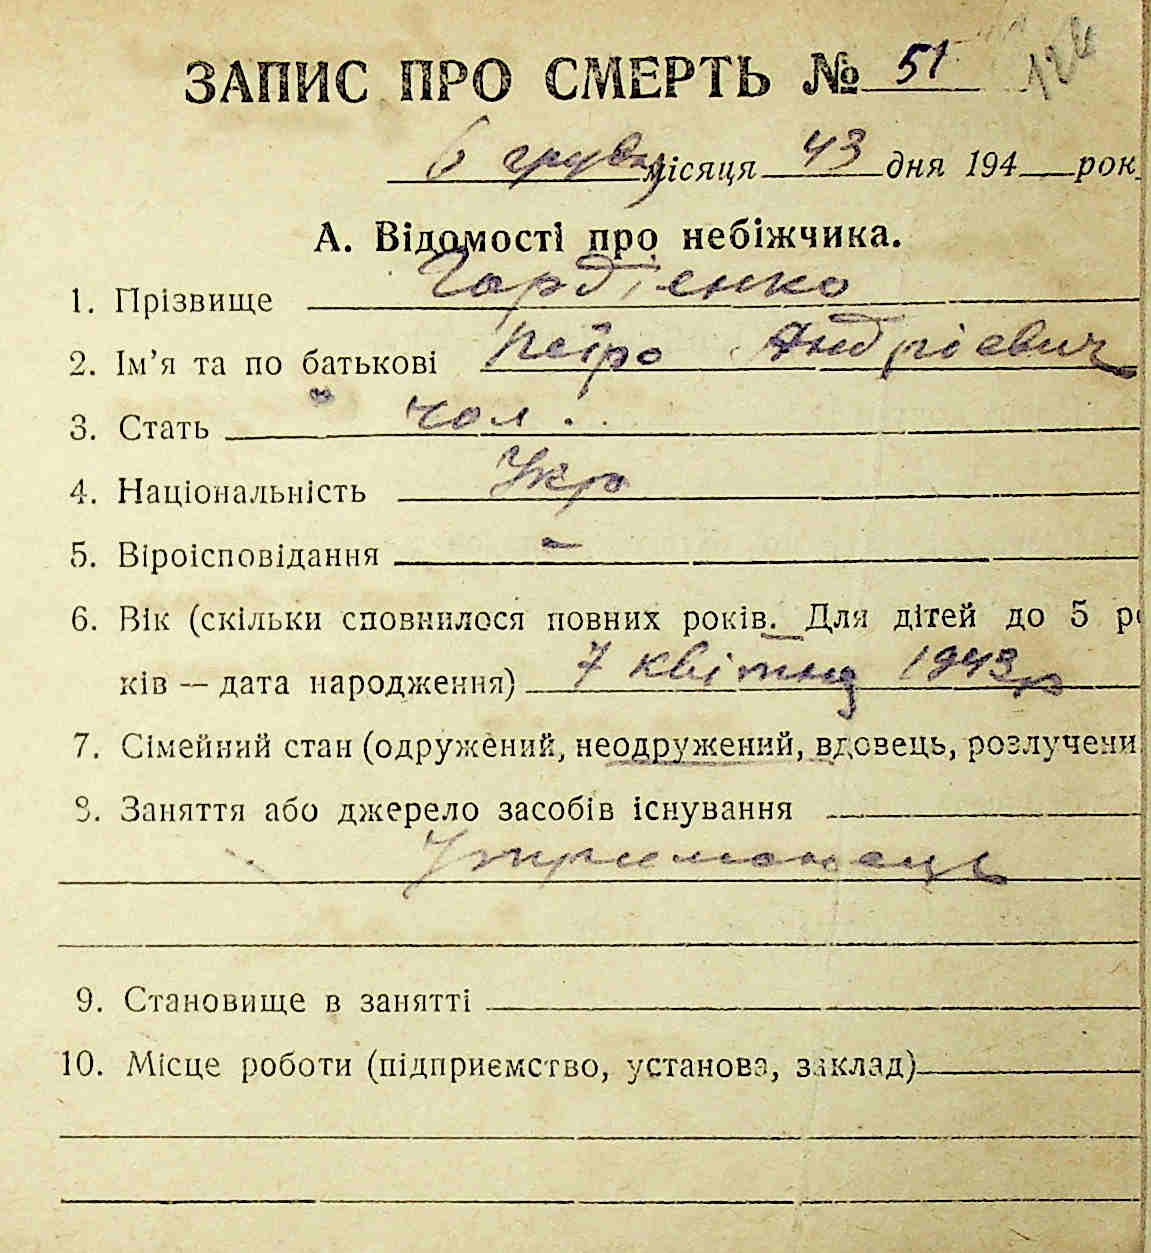 ЗАПИС ПРО СМЕРТЬ № 51 124
6 грудня місяця 43 дня 194 рок
А. Відомості про небіжчика.
1. Прізвище Гордієнко
2. Ім’я та по батькові Петро Андрієвич
3. Стать чол.
4. Національність Укр
5. Віроісповідання –
6. Вік (скільки сповнилося повних років. Для дітей до 5 ро
ків — дата народження) 7 квітня 1943 р
7. Сімейний стан (одружений, неодружений, вдовець, розлучени
8. Заняття або джерело засобів існування
Утриманець
9. Становище в занятті
10. Місце роботи (підприємство, установа, заклад)